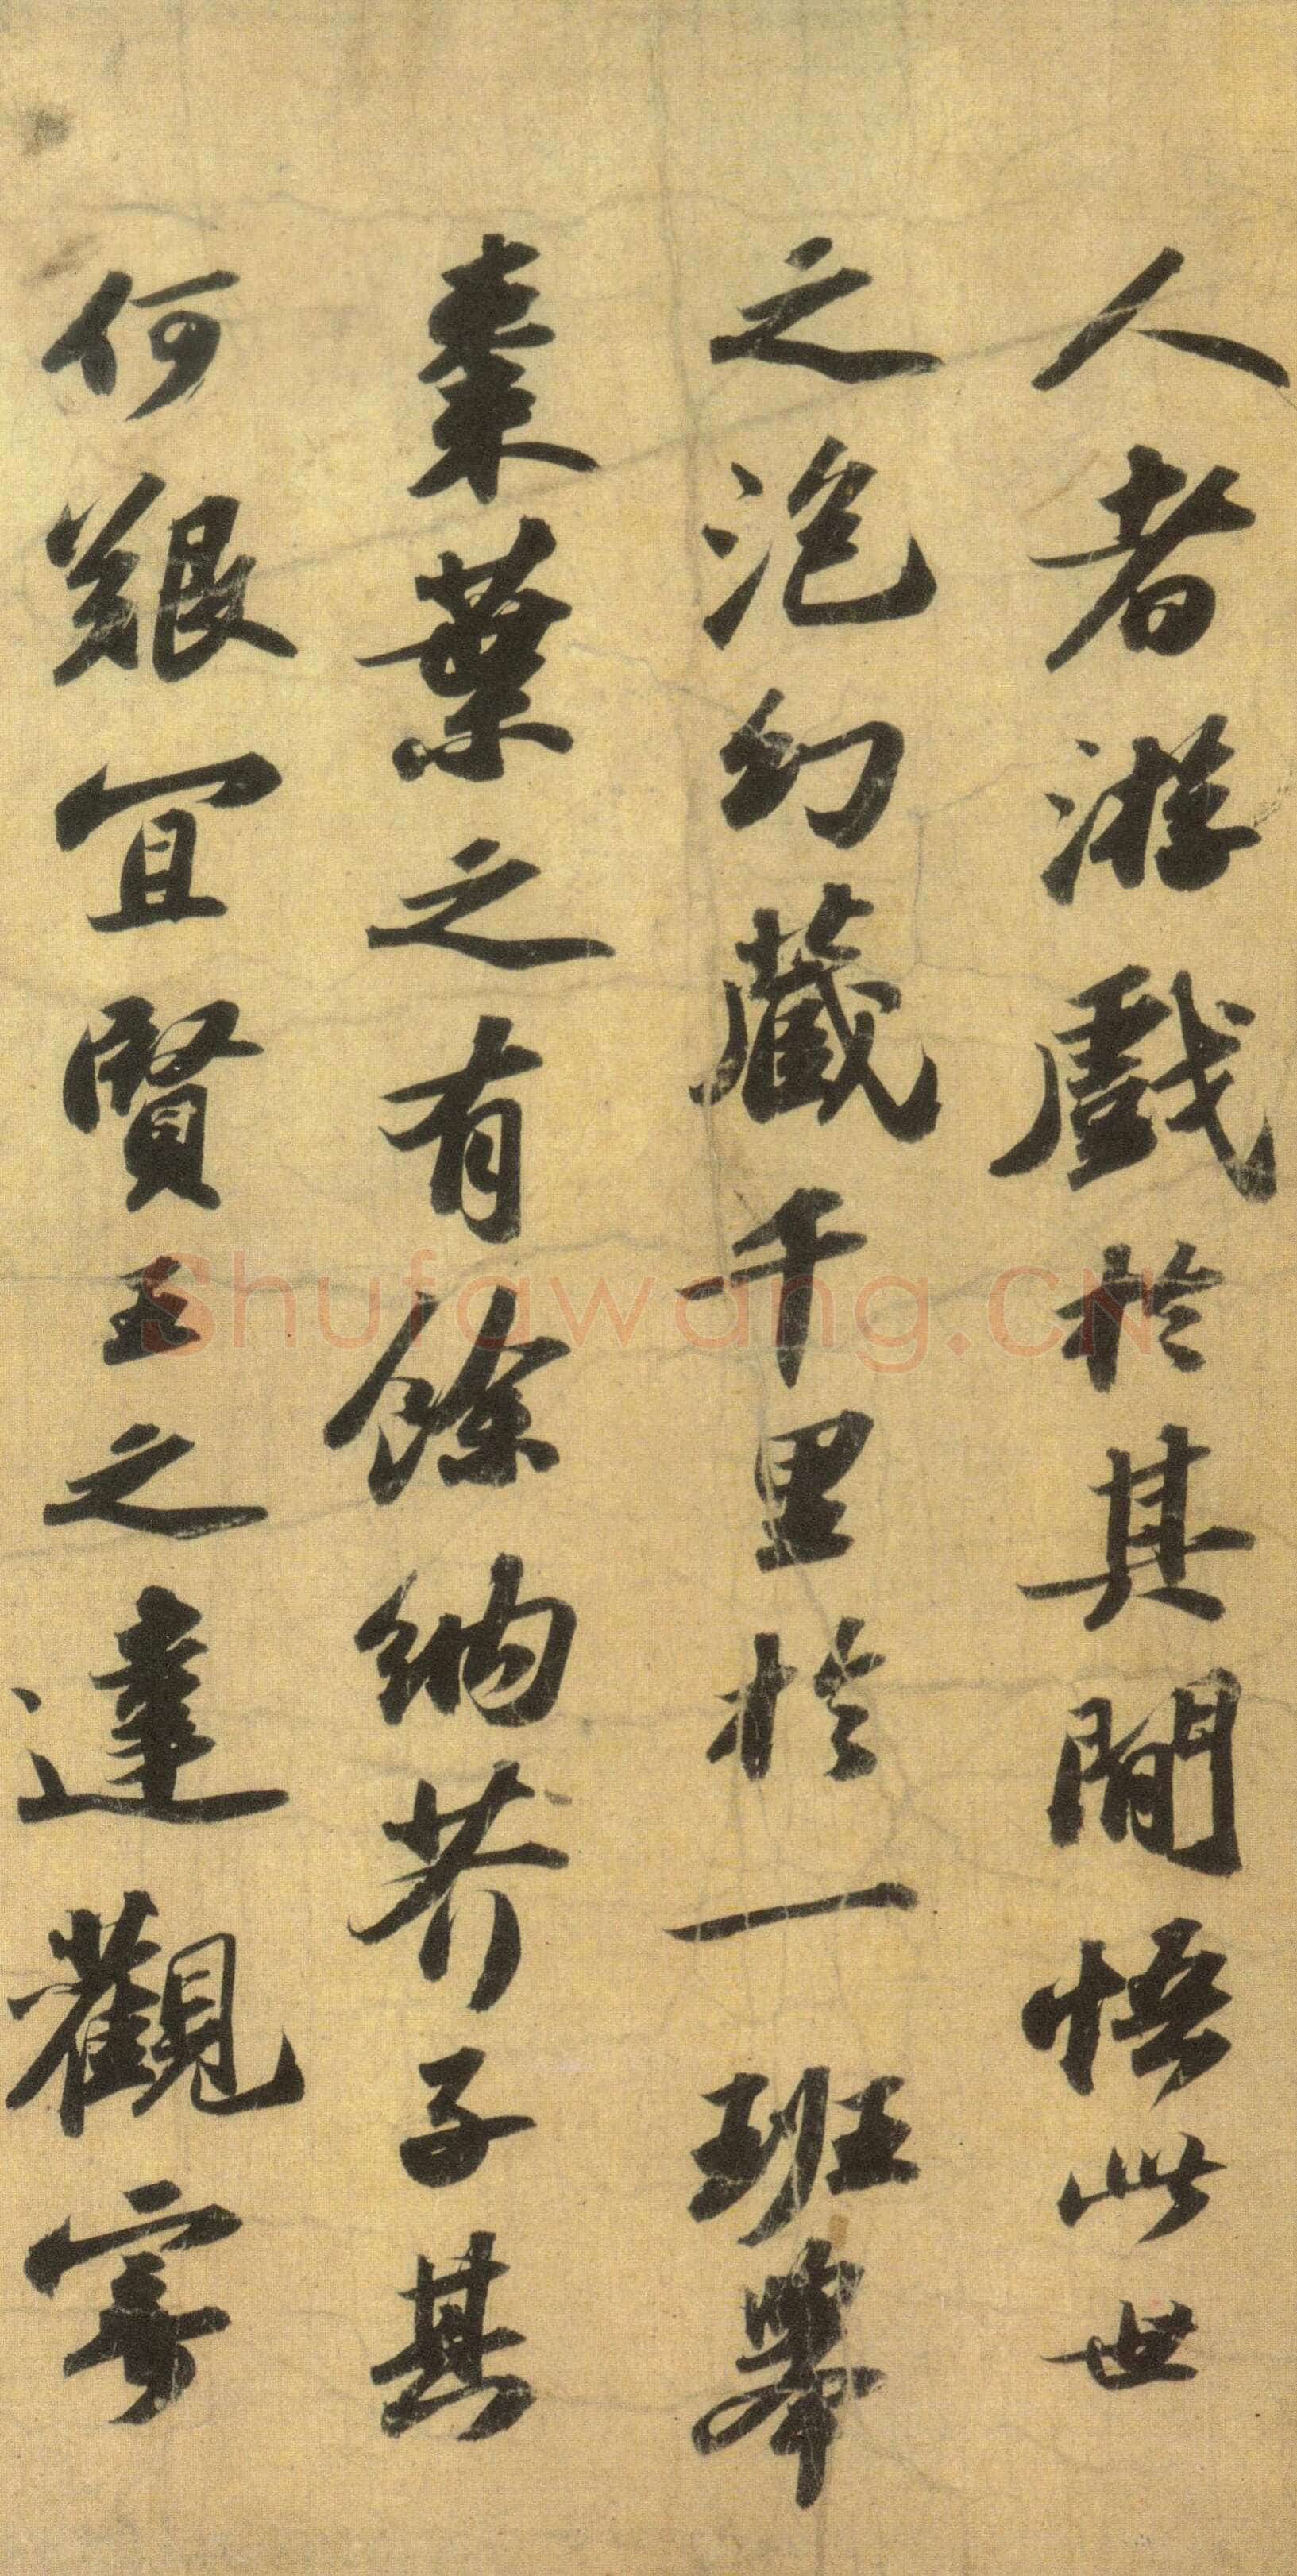 人者游戲於其間悟此世
之泡幻藏千里於一班舉
棗葉之有餘納芥子其
何艱宜賢王之達觀寄
Shufawang.CN